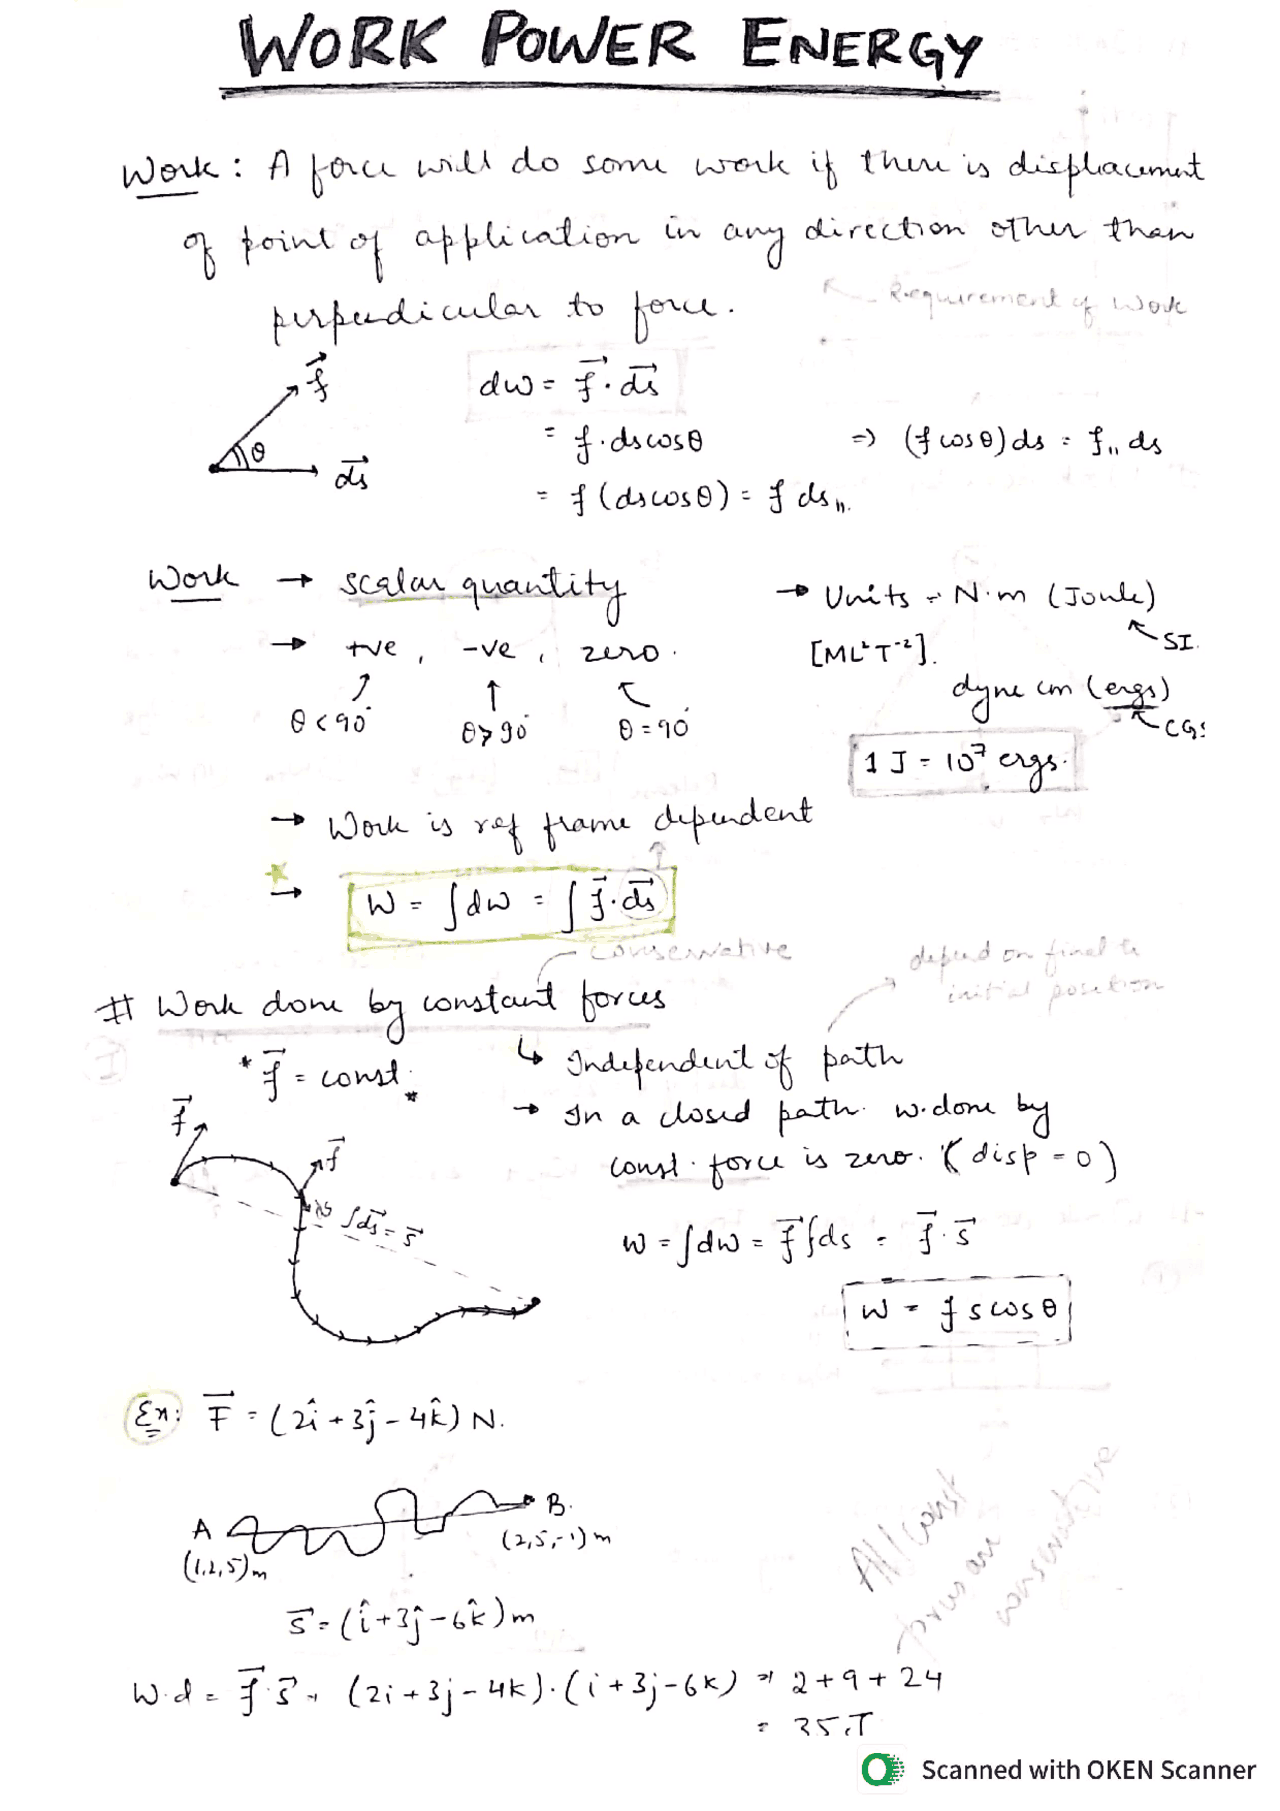 WORK POWER ENERGY
Work: A force will do some work if there is displacement
of point of application in any direction other than
perpendicular to force.
Requirement of Work
f⃗
θ
d⃗s
dw = f⃗ · d⃗s
= f·dscosθ ⇒ (f cosθ)ds = f₁₁ ds
= f(dscosθ) = f ds₁₁.
Work → scalar quantity
→ +ve, -ve, zero.
θ<90° θ>90° θ=90°
→ Units = N·m (Joule)
SI.
[ML²T⁻²].
dyne cm (ergs)
CGS
1 J = 10⁷ ergs.
→ Work is ref frame dependent
→ W = ∫dw = ∫f⃗·d⃗s
conservative
depend on final &
initial position
# Work done by constant forces
* f⃗ = const. *
↳ Independent of path
→ In a closed path w.done by
const. force is zero. (disp = 0)
f⃗
f⃗
ds
∫d⃗s = s⃗
w = ∫dw = f⃗∫ds = f⃗·s⃗
w = f s cosθ
Ex: F⃗ = (2î + 3ĵ - 4k̂) N.
A
(1,2,5)m
B.
(2,5,-1)m
All const
forces are
conservative
s⃗ = (î+3ĵ-6k̂)m
W.d = f⃗·s⃗ = (2i+3j-4k)·(i+3j-6k) = 2+9+24
= 35J
Scanned with OKEN Scanner